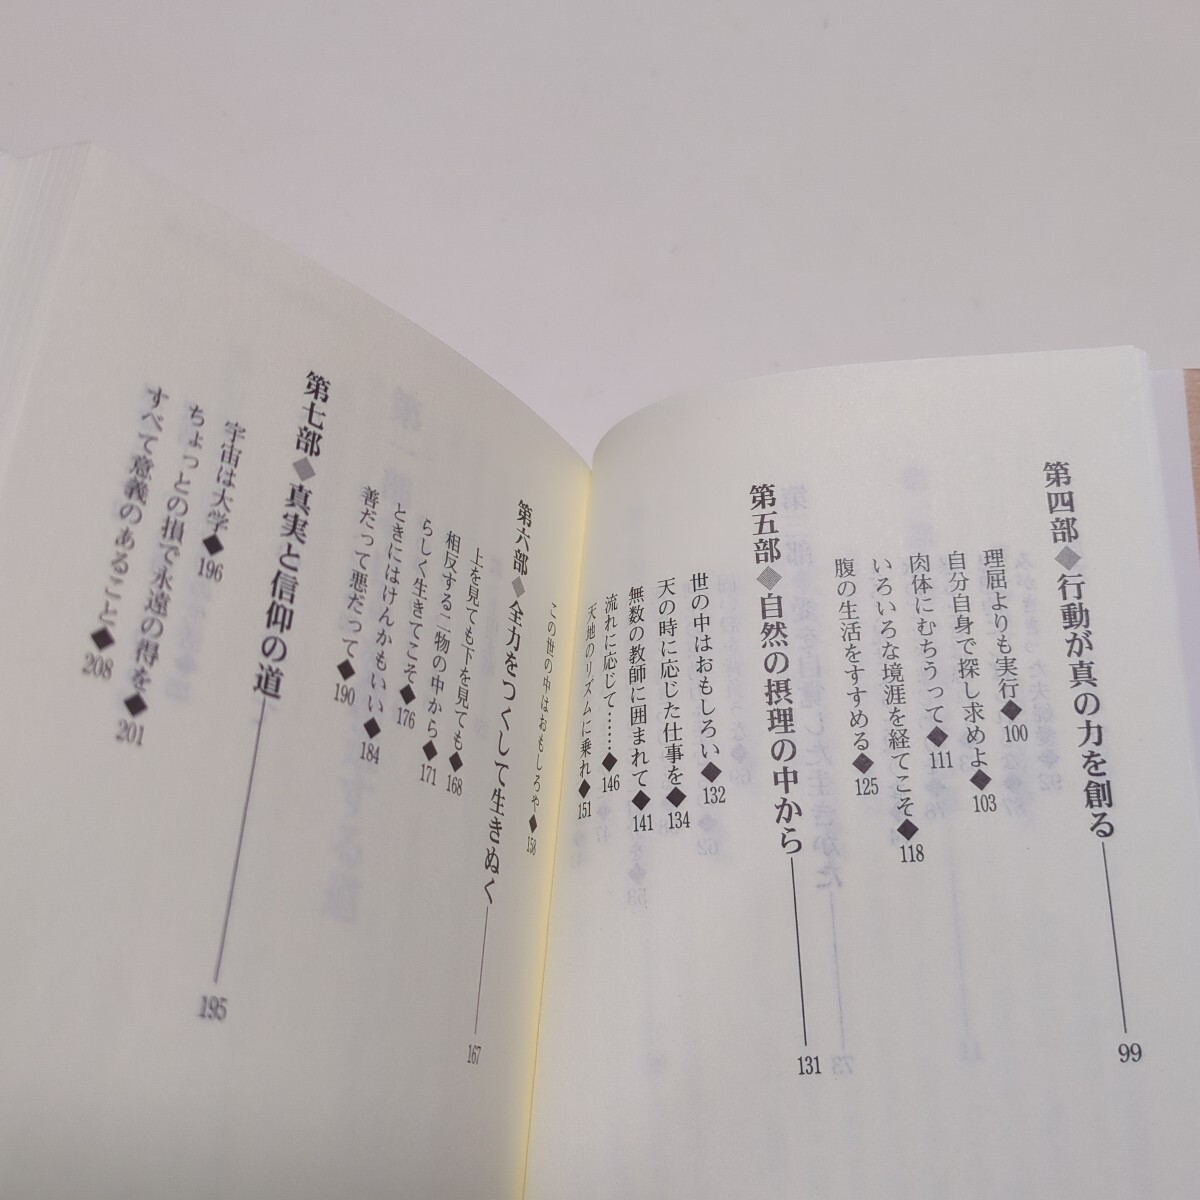 第四部◆行動が真の力を創る――99
理屈よりも実行◆100
自分自身で探し求めよ◆103
肉体にむちうって◆111
いろいろな境涯を経てこそ◆118
腹の生活をすすめる◆125
第五部◆自然の摂理の中から――131
世の中はおもしろい◆132
天の時に応じた仕事を◆134
無数の教師に囲まれて◆141
流れに応じて……◆146
天地のリズムに乗れ◆151
この世の中はおもしろや◆158
第六部◆全力をつくして生きぬく――167
上を見ても下を見ても◆168
相反する二物の中から◆171
らしく生きてこそ◆176
ときにはけんかもいい◆184
善だって悪だって◆190
第七部◆真実と信仰の道――195
宇宙は大学◆196
ちょっとの損で永遠の得を◆201
すべて意義のあること◆208